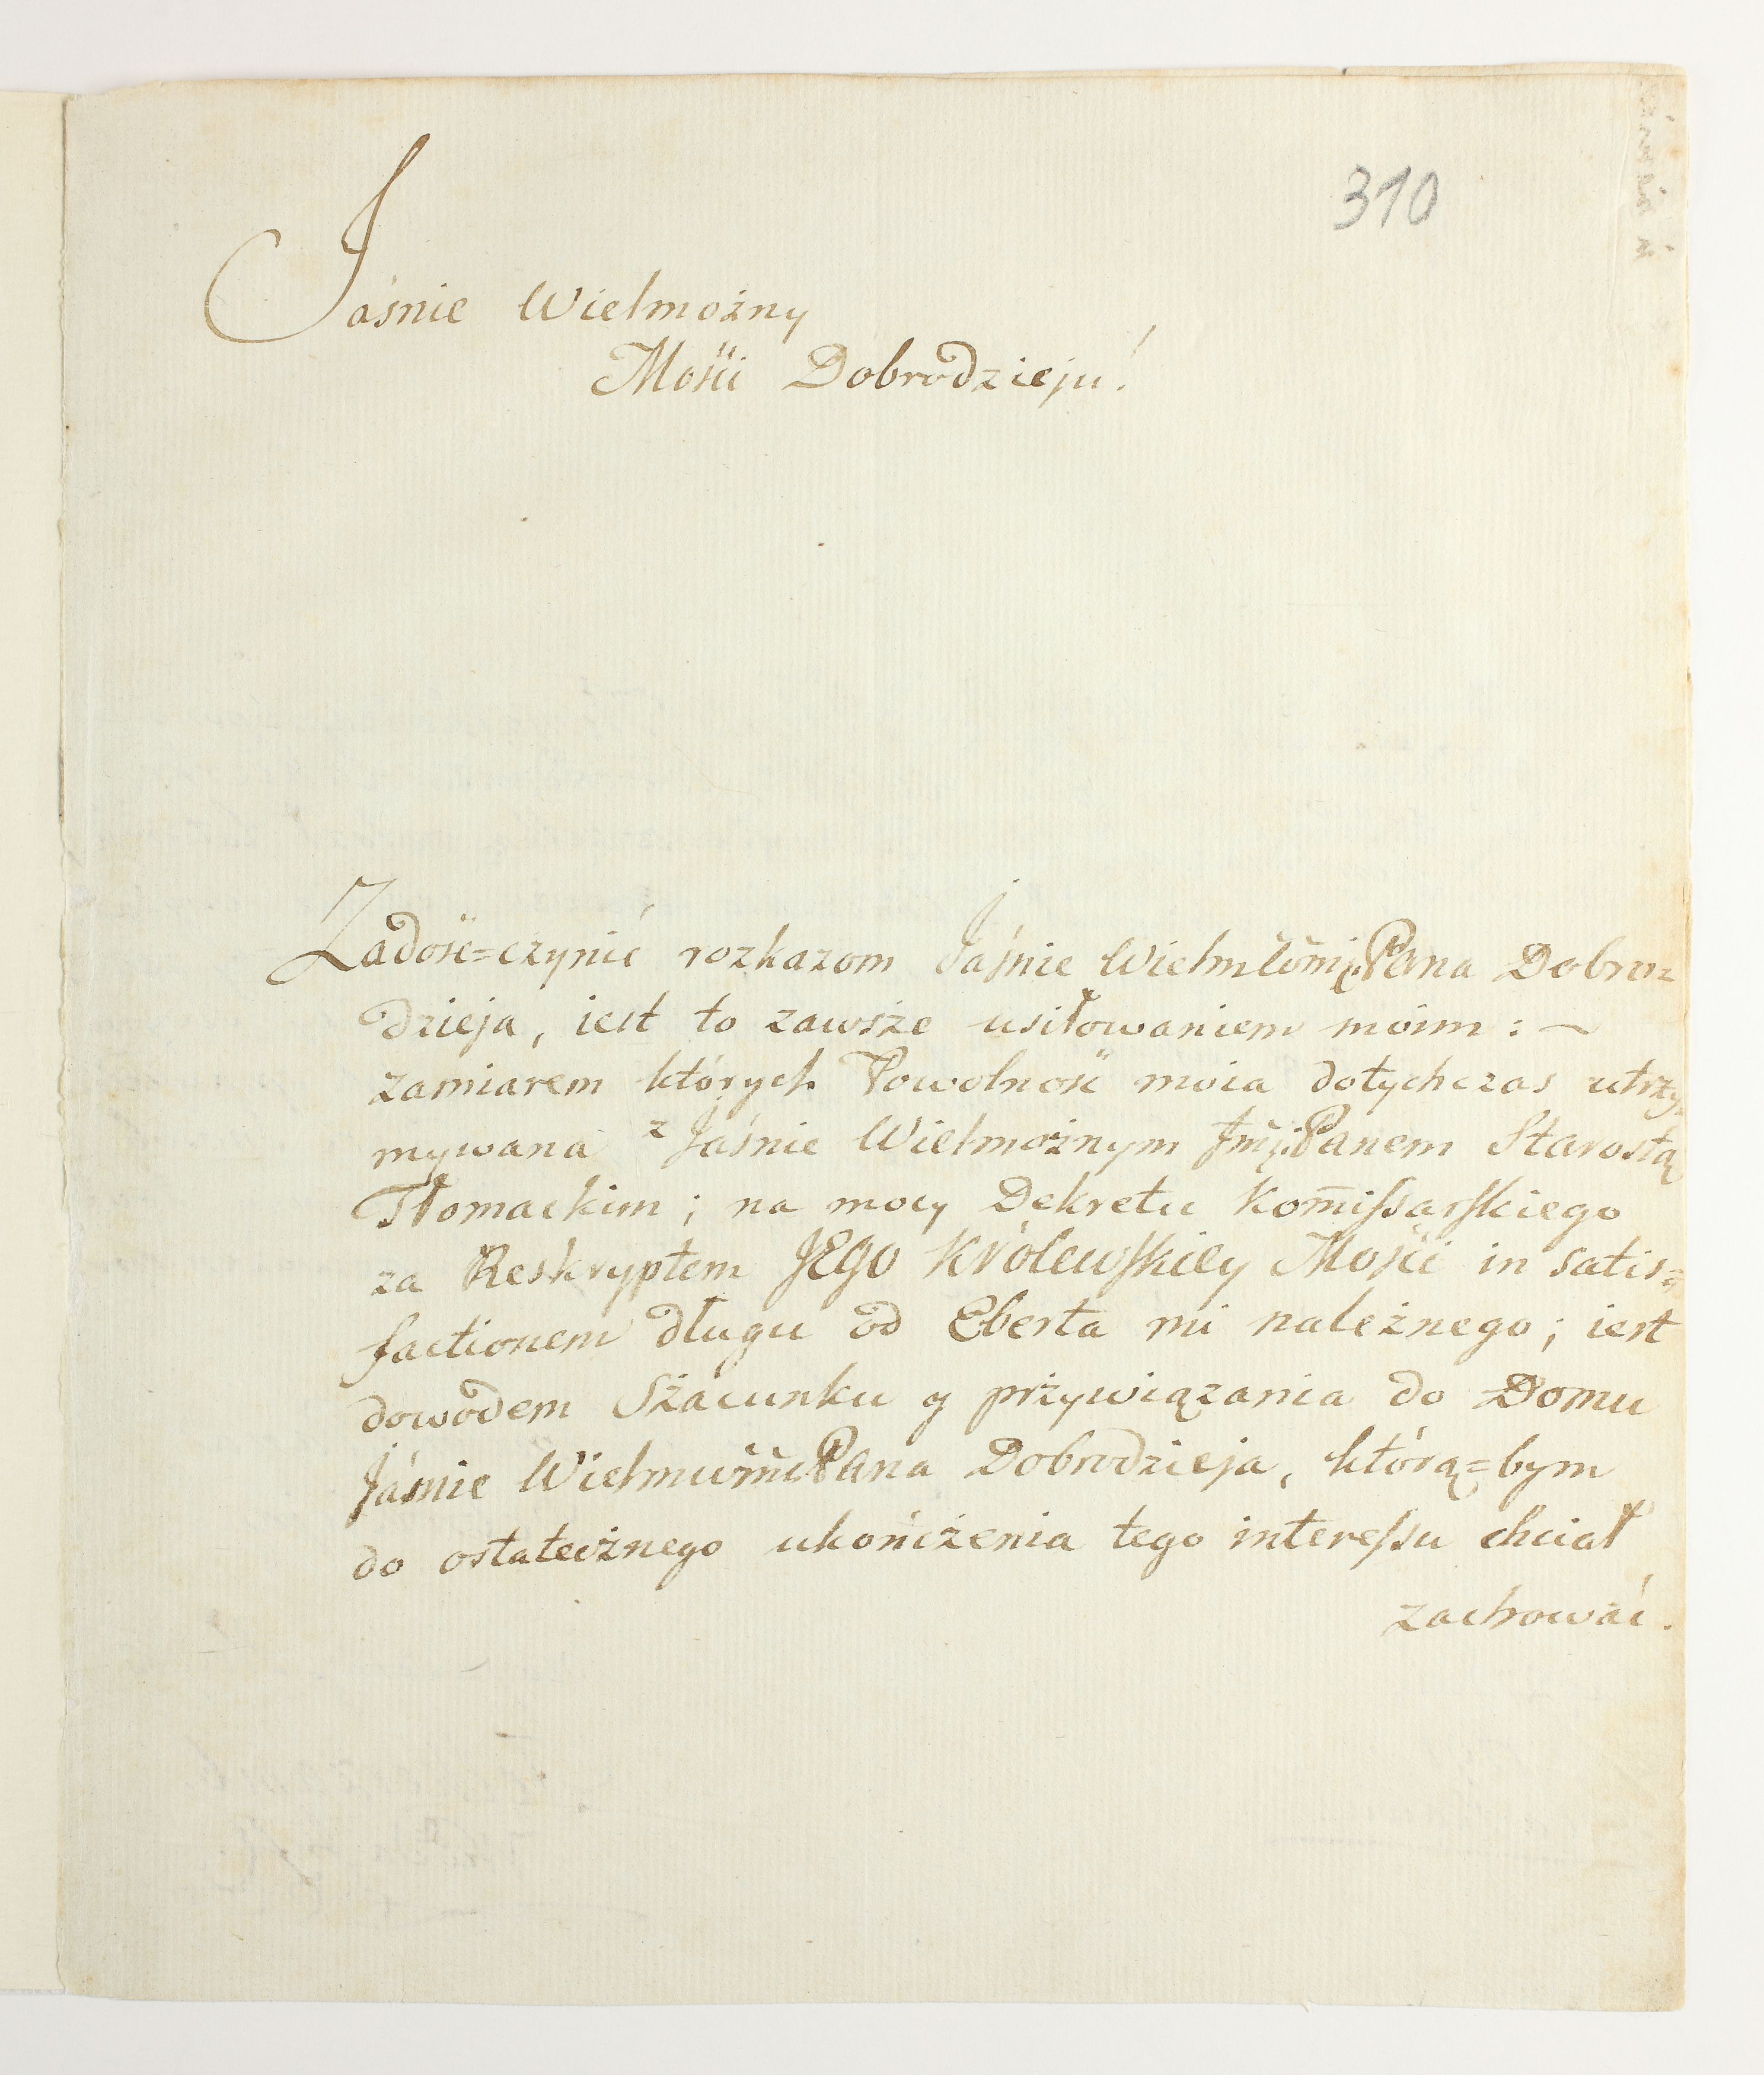 310
Jaśnie Wielmożny
Mości Dobrodzieju!
Zadość=czynić rozkazom Jaśnie Pana Dobro=
dzieja, iest to zawsże usiłowaniem moim : ~
zamiarem których Powolność moia dotychczas utrzy=
mywana z Jaśnie Wielmożnym Jmći Panem Starostą
Tłomackim ; na mocy Dekretu Kom̄issarskiego
za Reskryptem JEGO Królewskiey Mości in satis=
factionem długu od Eberta mi należnego ; iest
dowodem Szacunku y przywiązania do Domu
Jaśnie Pana Dobrodzieja, którą=bym
do ostateżnego ukończenia tego interessu chciał
zachować.